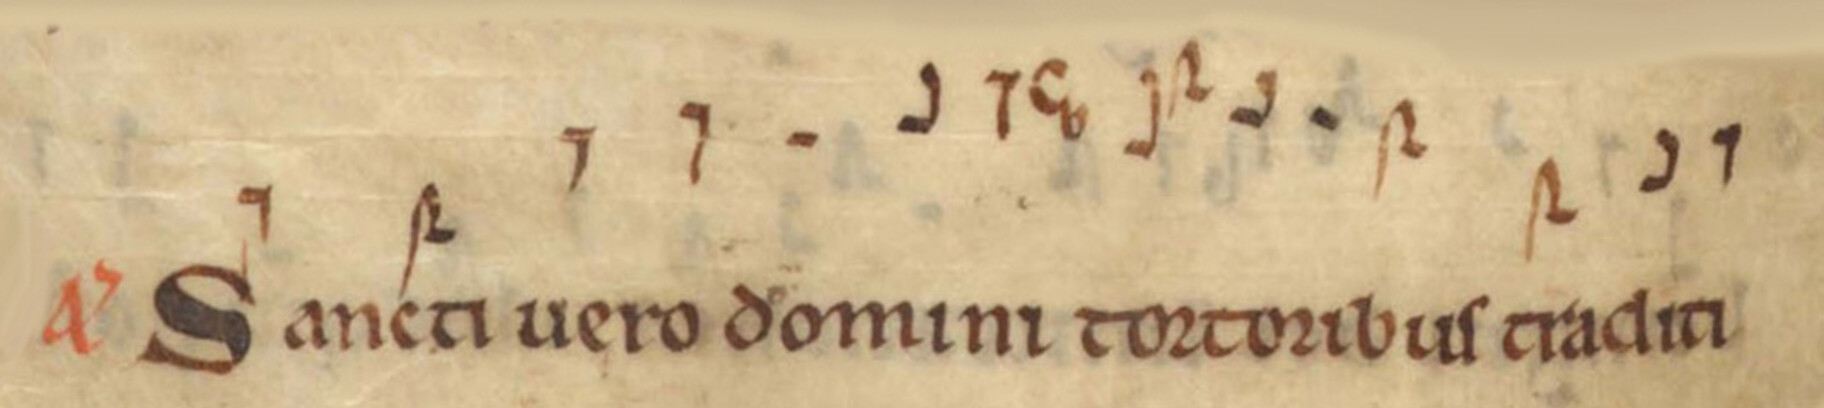 A Sancti uero domini tortoribus traditi